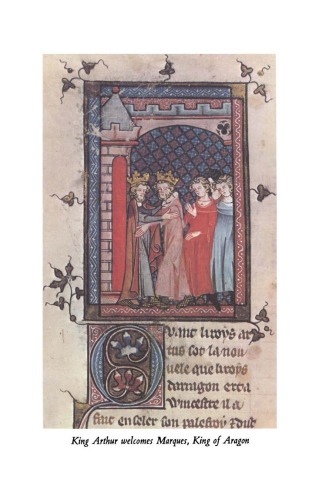 Quant li roys ar
tus sot la nou
uele que li roys
darragon ert a
wincestre il a
fait enseler son palefroy
King Arthur welcomes Marques, King of Aragon